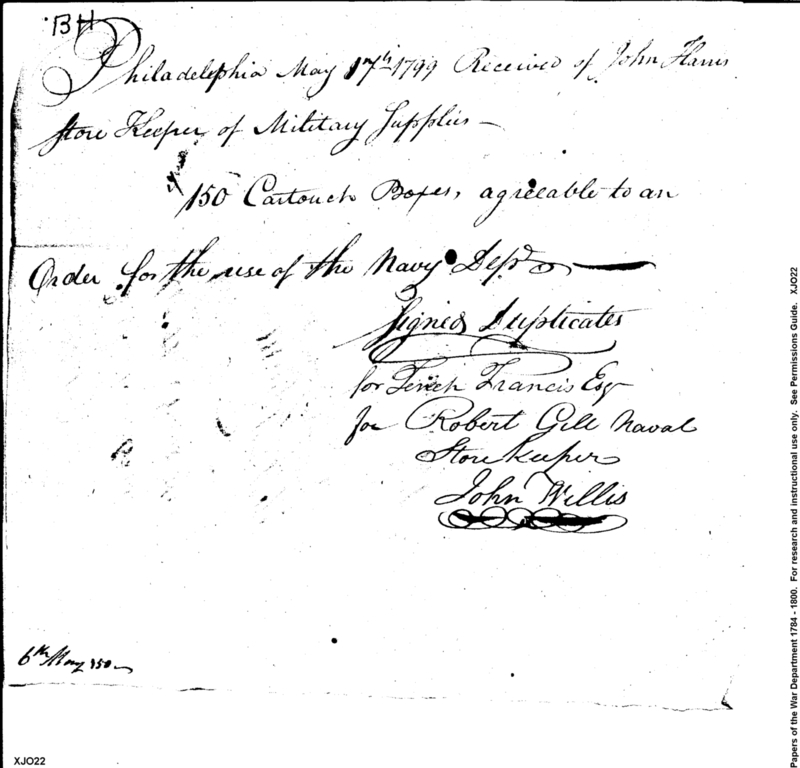 BH
Philadelphia May 17th 1799 Received of John Harris
Store Keeper of Military Supplies —
150 Cartouch Boxes, agreeable to an
Order for the use of the Navy Dept —
Signed Duplicates
for Tench Francis Esq
for Robert Gill Naval
Store Keeper
John Willis
6th May 150
XJO22
Papers of the War Department 1784 - 1800. For research and instructional use only. See Permissions Guide. XJO22